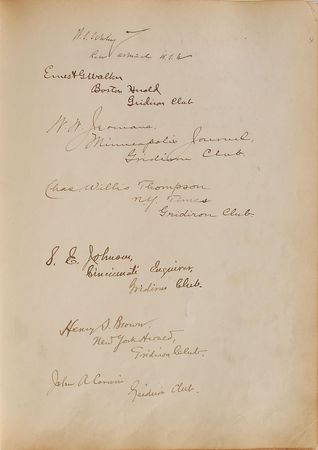 Ernest G. Walker
Boston Herald
Gridiron Club
W. W. Jermane,
Minneapolis Journal,
Gridiron Club.
Chas. Willis Thompson
N.Y. Times
Gridiron Club.
S. E. Johnson,
Cincinnati Enquirer,
Gridiron Club.
Henry S. Brown,
New York Herald,
Gridiron Club.
John A Corwin
Gridiron Club.